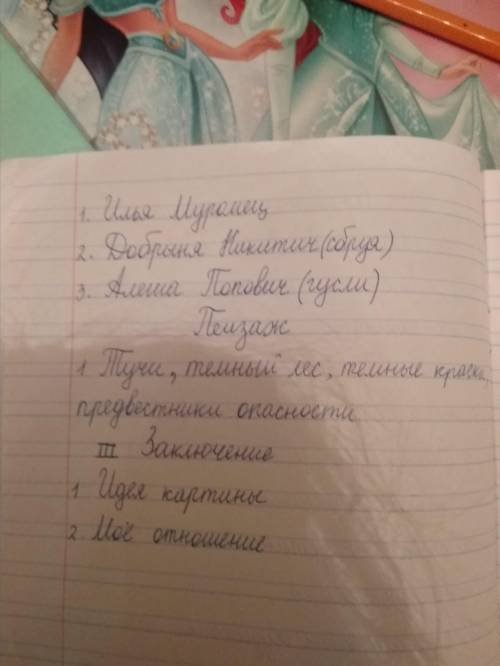 1. Илья Муромец
2. Добрыня Никитич (сбруя)
3. Алеша Попович (гусли)
Пейзаж
1 Тучи, темный лес, темные краски,
предвестники опасности
III Заключение
1 Идея картины
2. Моё отношение